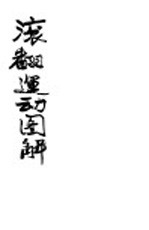 滚翻運动图解